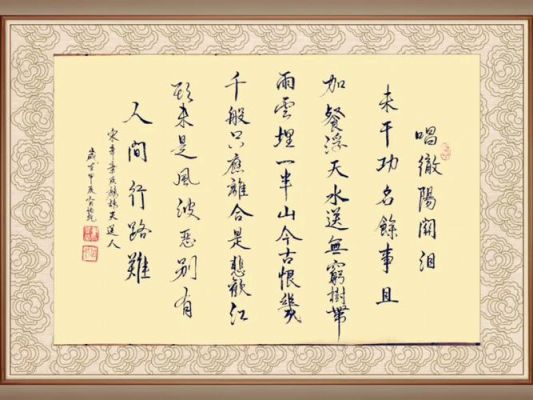 唱徹陽關泪
未干功名餘事且
加餐浮天水送無窮樹帶
雨雲埋一半山今古恨幾
千般只應離合是悲歡江
頭未是風波惡別有
人間行路難
宋辛棄疾鷓鴣天送人
歲在甲辰